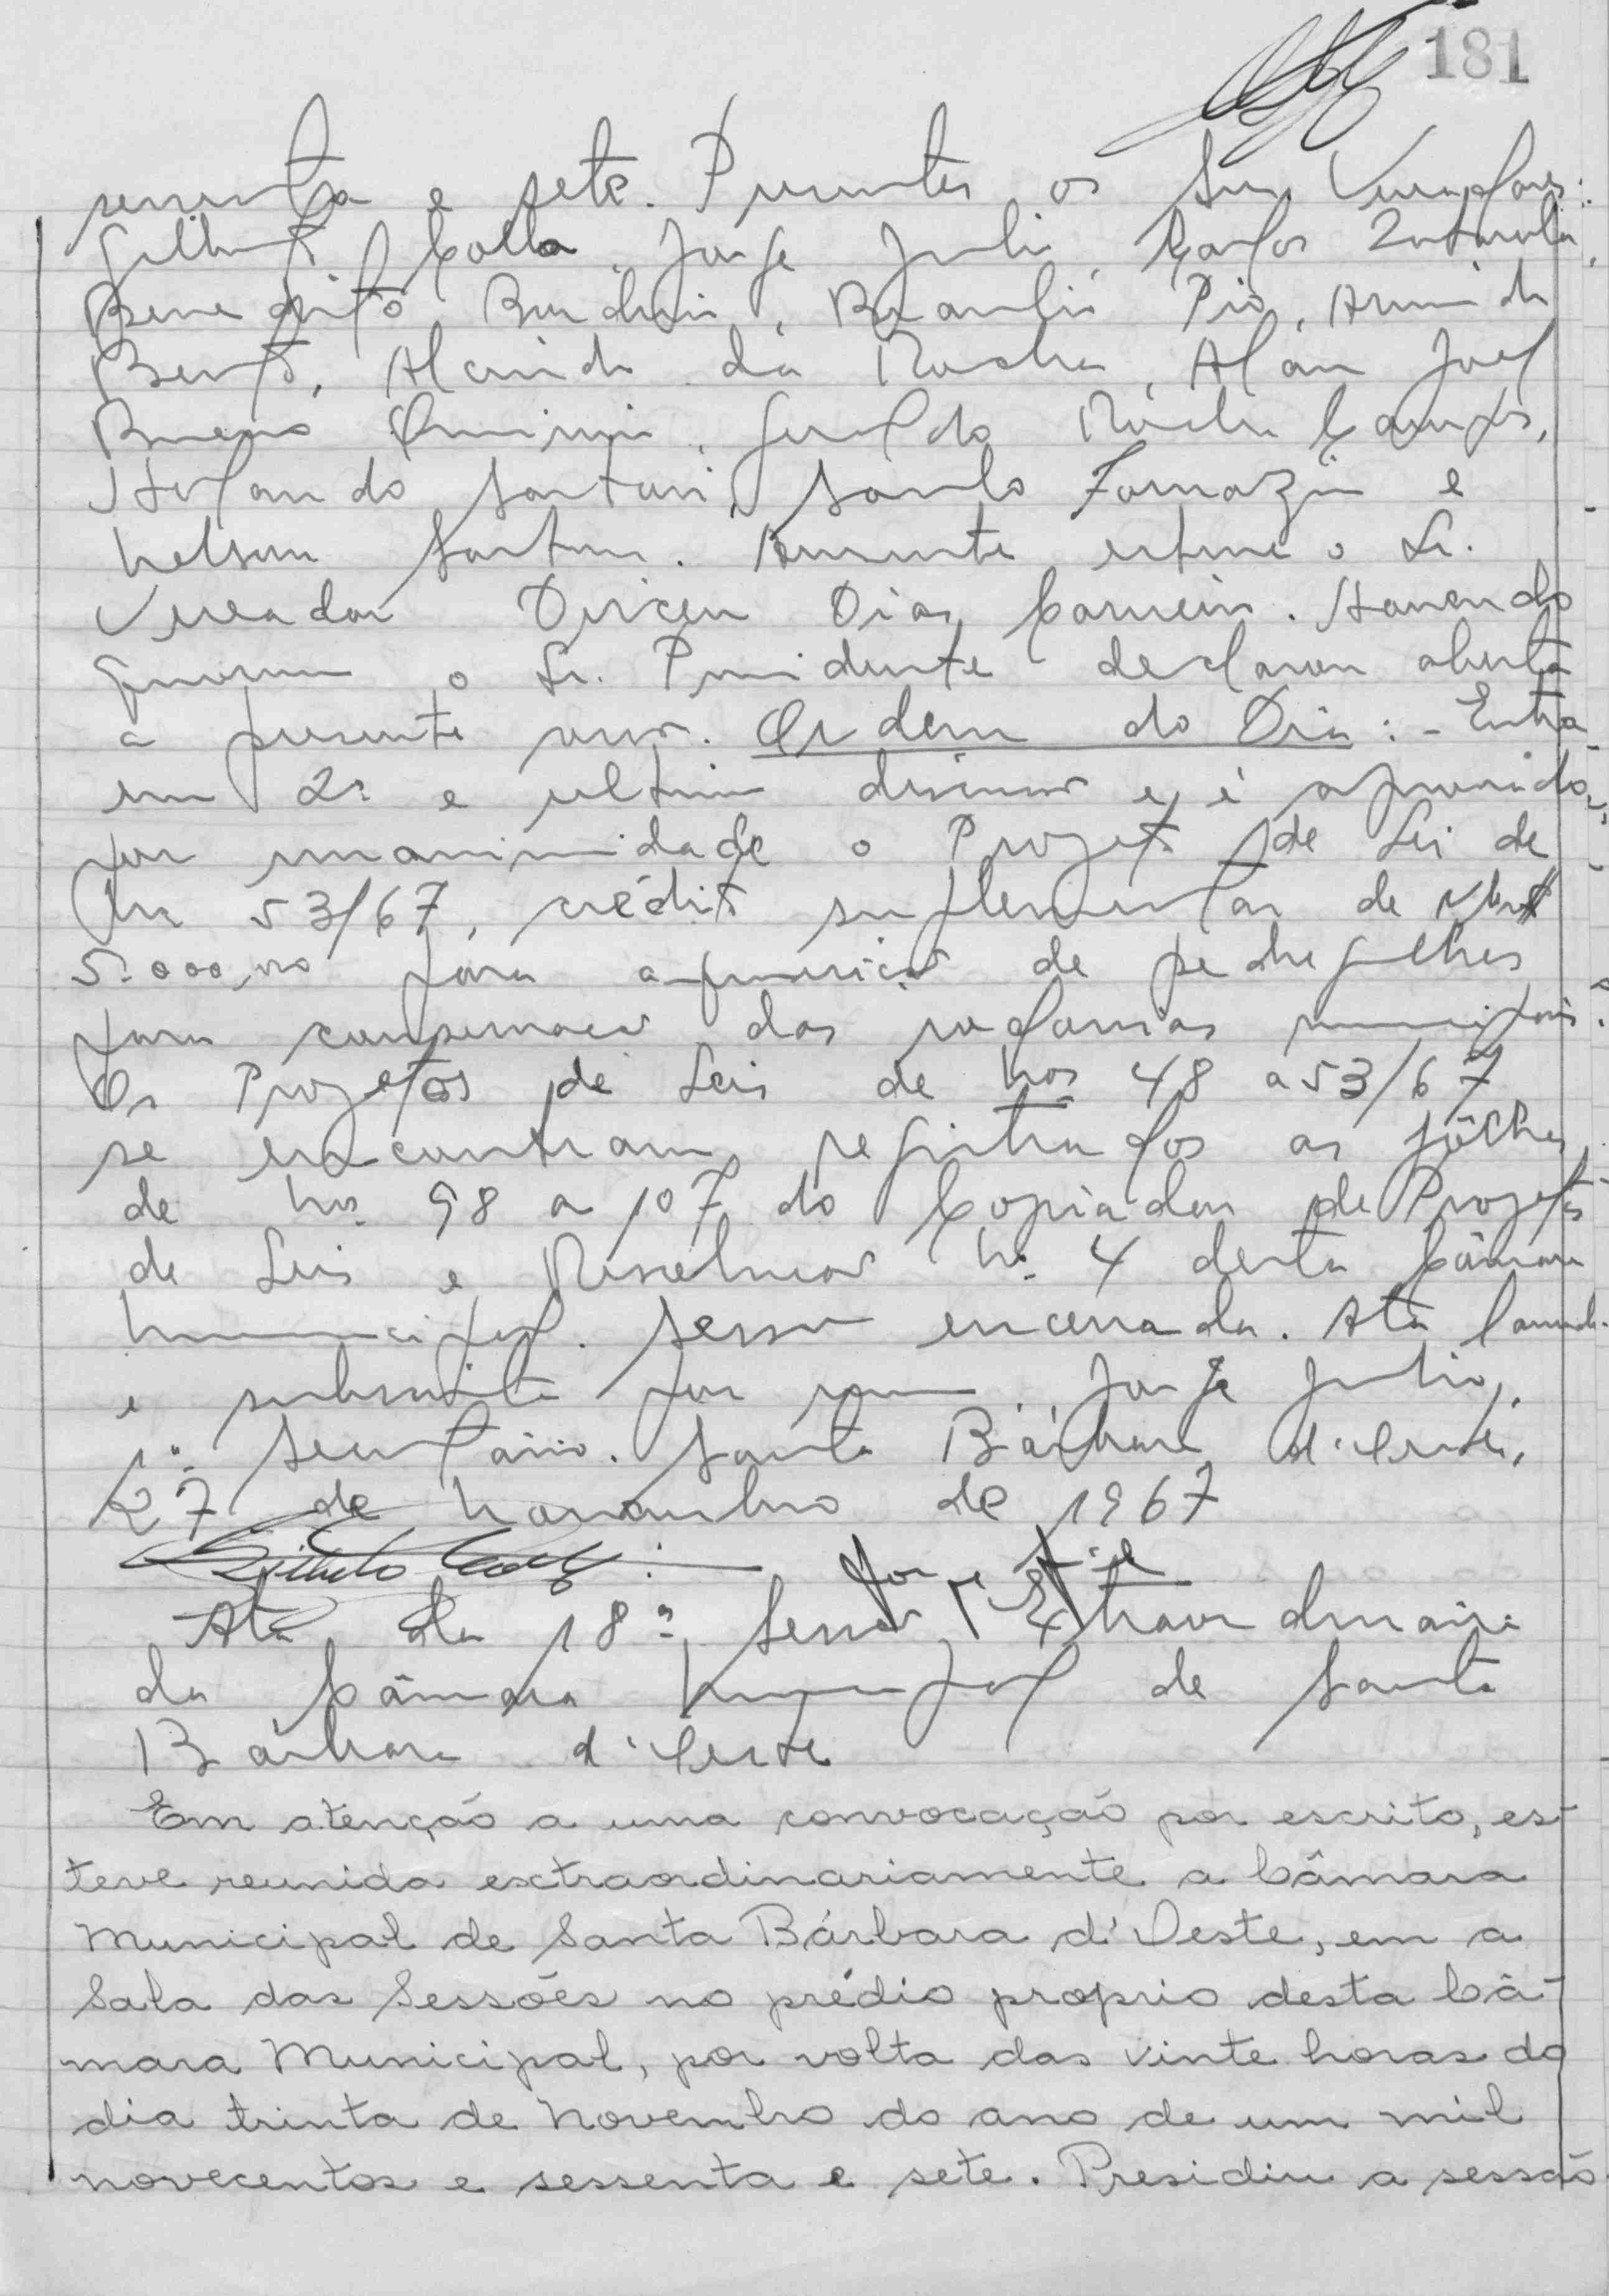 181
sessenta e sete. Presentes os Srs. Vereadores:
Gilberto Colla, Jorge Julio, Carlos
Benedito, Braulio Pio, Armindo
Bento, Alcindo da Rocha, Alan Joel
Bueno Quirino, Geraldo Rocha Campos,
Orlando Sartori, Santo Fornazin e
Nelson Sartori. Ausente esteve o Sr.
Vereador Dirceu Dias Carneiro. Havendo
quorum o Sr. Presidente declarou aberta
a presente sessão. Ordem do Dia: - Entra
em 2ª e ultima discussão e é aprovado,
por unanimidade o Projeto de Lei de
Nº 53/67, crédito suplementar de NCr$
5.000,00 para aquisição de pedregulhos
para conservação das rodovias municipais.
Os Projetos de Leis de Nos 48 a 53/67
se encontram registrados as fôlhas
de nos. 98 a 107 do Copiador de Projetos
de Leis e Resoluções Nº 4 desta Câmara
Municipal. Sessão encerrada. Ata lavrada
e subscrita por mim, Jorge Julio,
1º Secretário. Santa Bárbara d'Oeste,
27 de Novembro de 1967
Ata da 18ª Sessão Extraordinária
da Câmara Municipal de Santa
Bárbara d'Oeste
Em atenção a uma convocação por escrito, es-
teve reunida extraordinariamente a Câmara
Municipal de Santa Bárbara d'Oeste, em a
Sala das Sessões no prédio proprio desta Câ-
mara Municipal, por volta das vinte horas do
dia trinta de Novembro do ano de um mil
novecentos e sessenta e sete. Presidiu a sessão